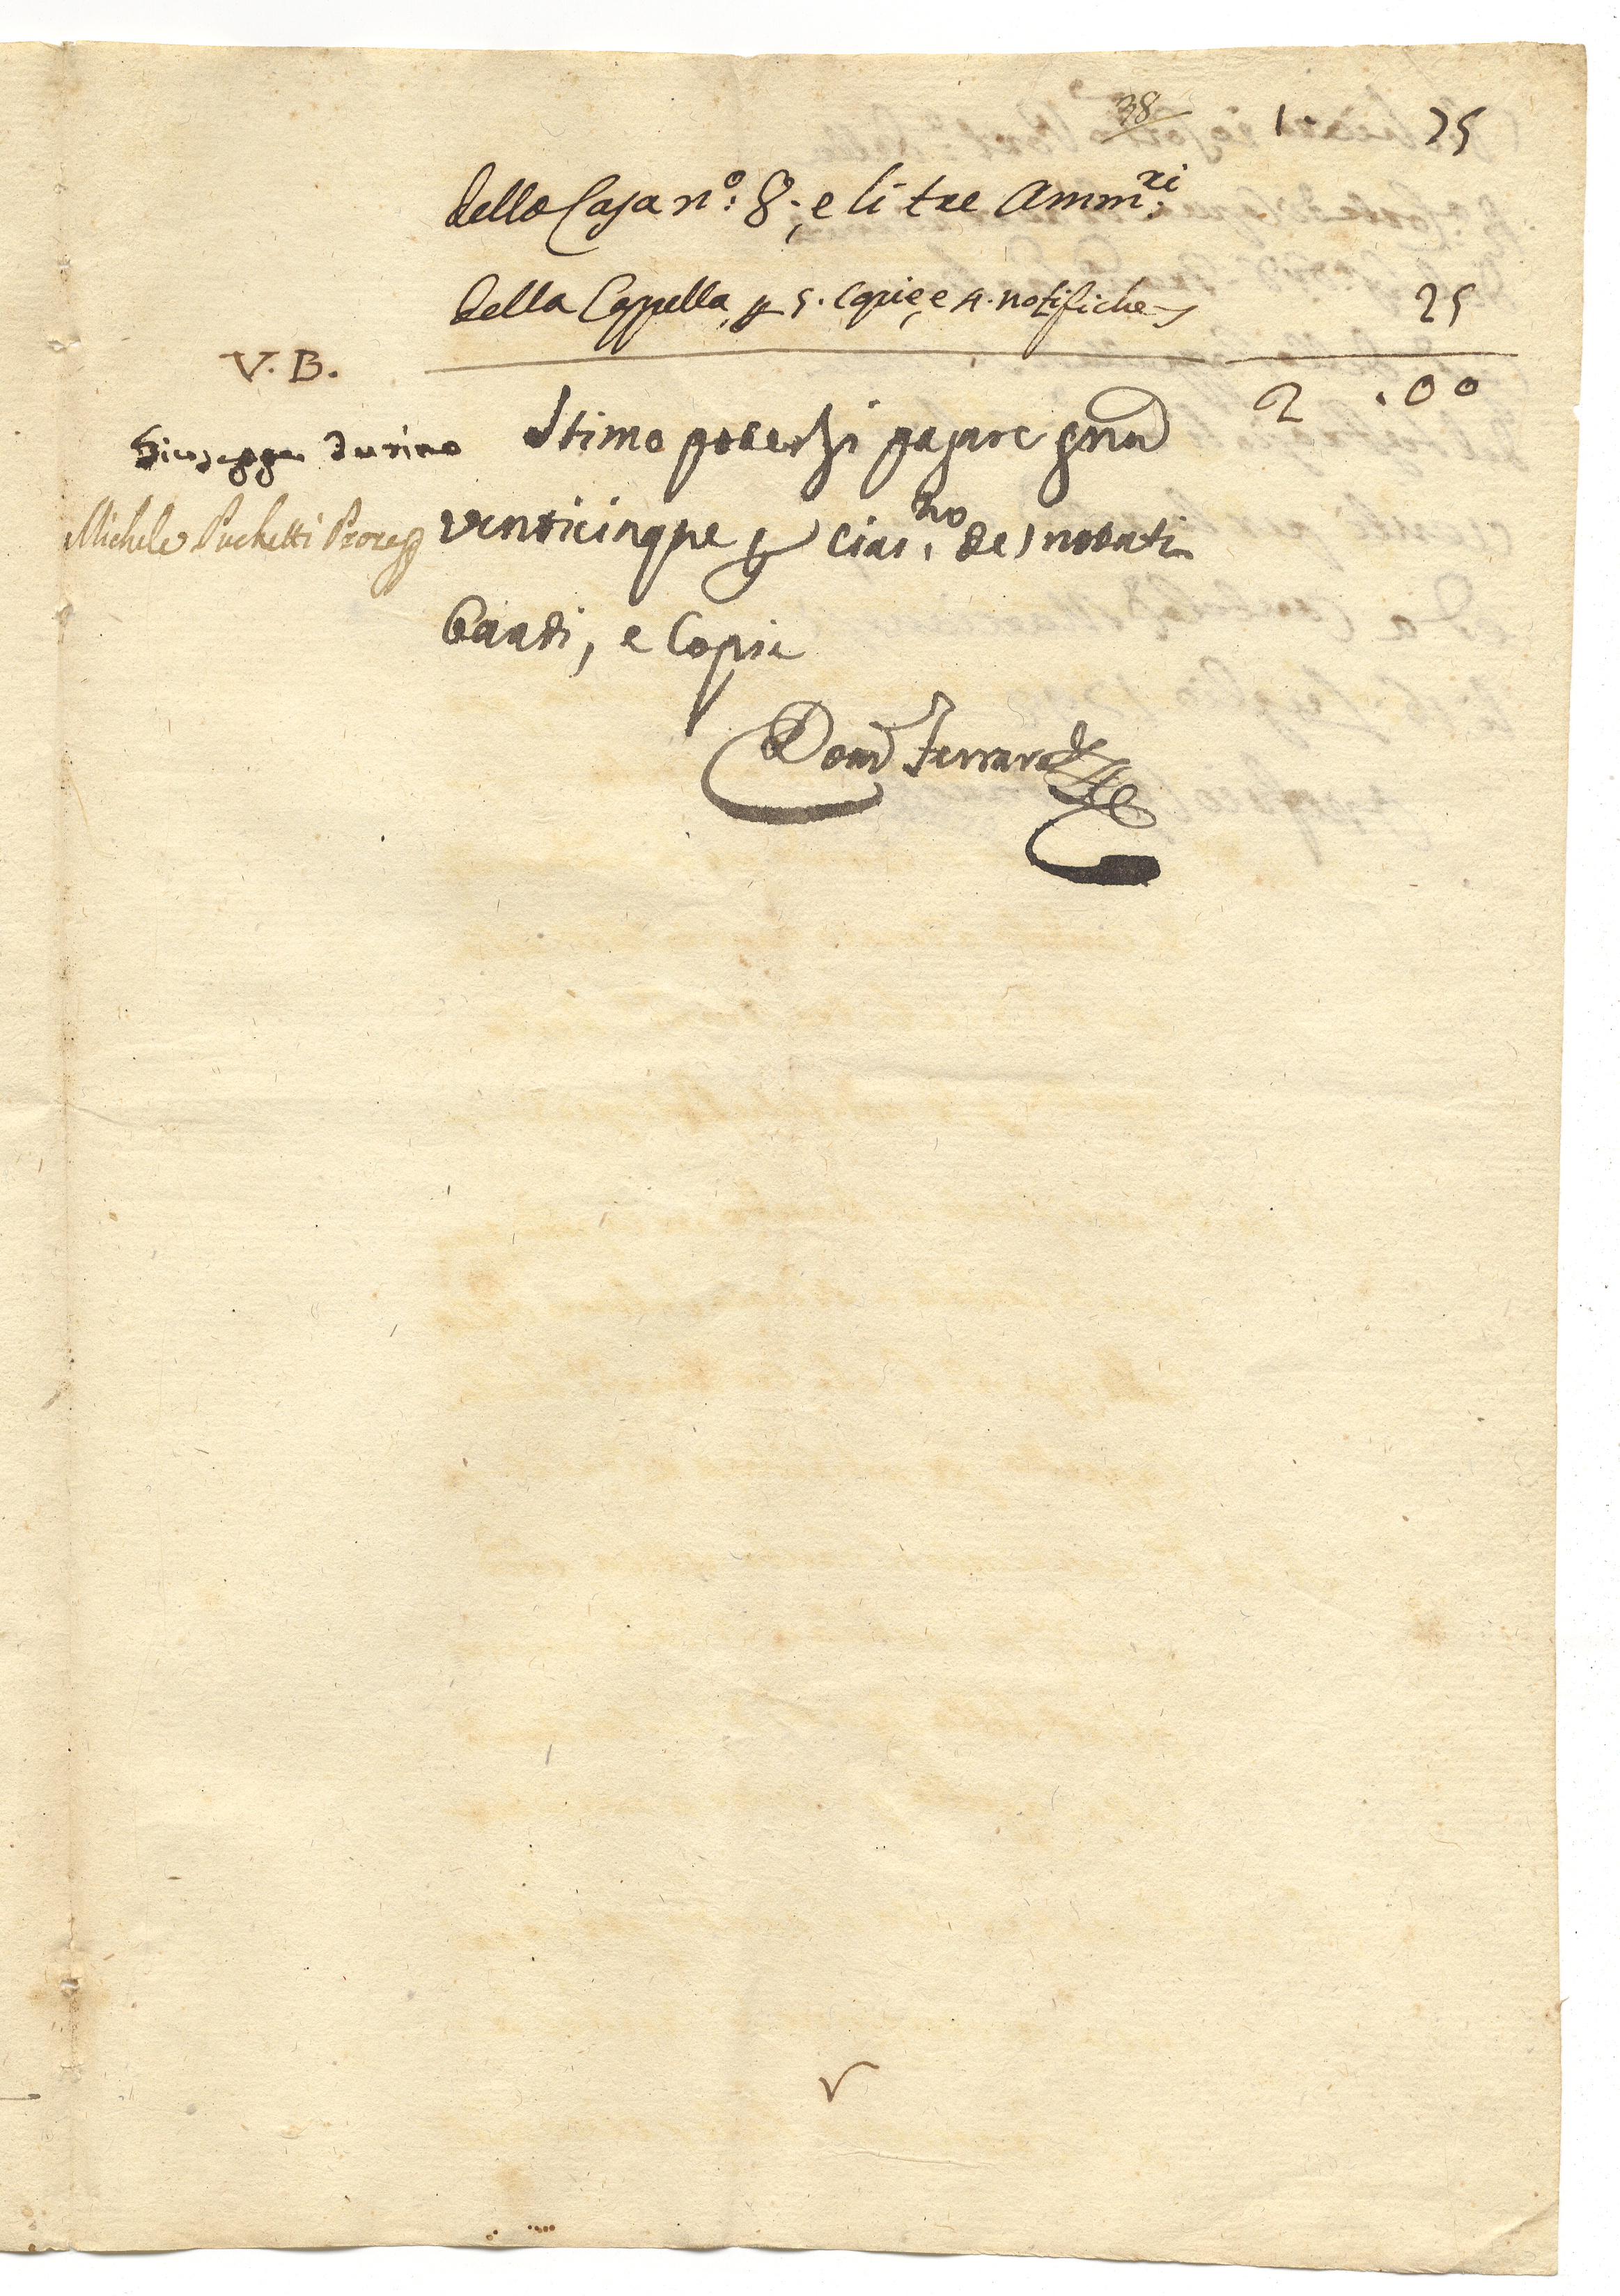 38 1. 75
della Casa n.º 8., e li tre Amm.ri
della Cappella, p 5. copie, e 4. notifiche 25
2 .00
V. B.
Giuseppe Durino
Michele Puchetti Prore
Stimo potersi pagare gna
venticinque p cias.no de) notati
Bandi, e Copie
Dom Ferrara